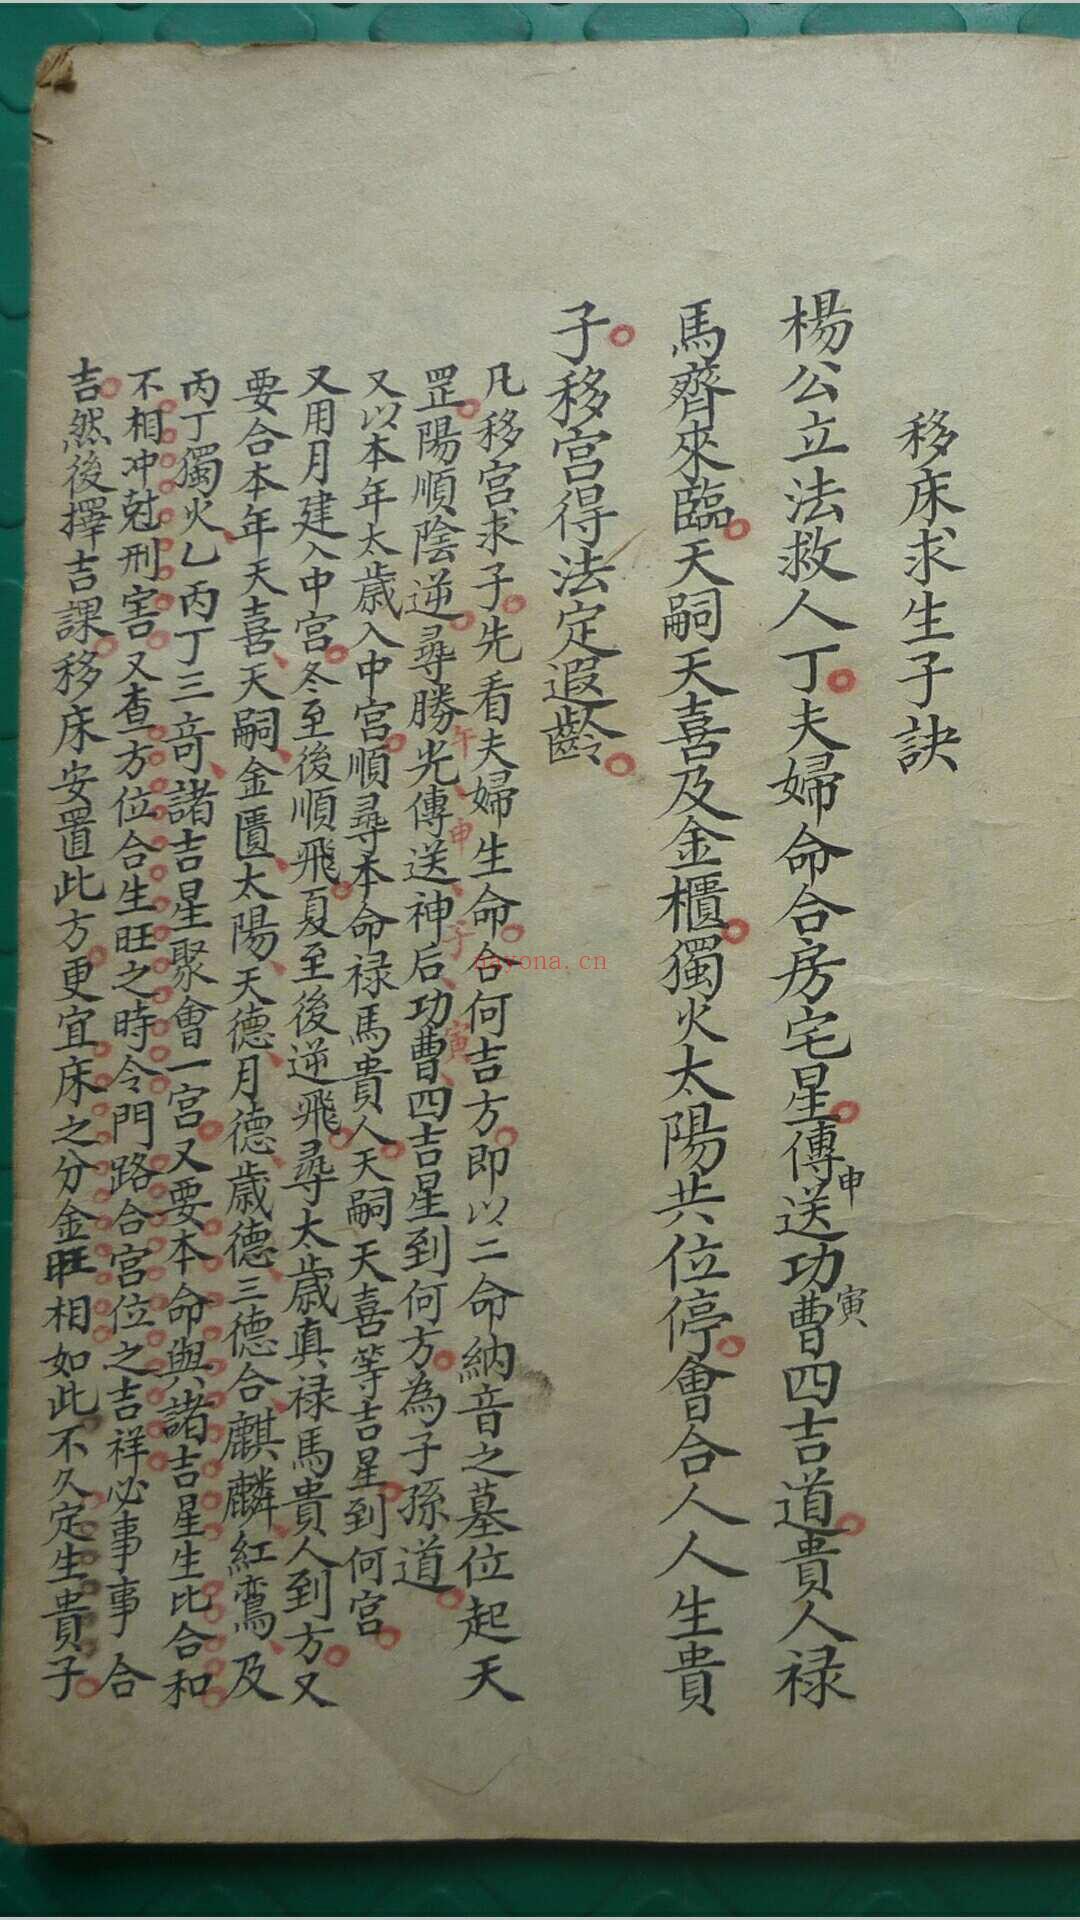 移床求生子訣
楊公立法救人丁。夫婦命合房宅星。傳申送功寅曹四吉道。貴人禄
馬齊來臨。天嗣天喜及金櫃。獨火太陽共位停。會合人人生貴
子。移宮得法定遐齡。
凡移宮求子。先看夫婦生命。合何吉方。即以二命納音之墓位起天
罡。陽順陰逆。尋勝光午、傳送申、神后子、功曹寅、四吉星到何方。為子孫道。
又以本年太歲入中宮。順尋本命禄馬貴人。天嗣天喜等吉星。到何宮。
又用月建入中宮。冬至後順飛。夏至後逆飛。尋太歲真禄馬貴人到方。又
要合本年天喜、天嗣、金匱、太陽、天德、月德、歲德、三德合、麒麟、紅鸞、及
丙丁獨火、乙丙丁三奇、諸吉星聚會一宮。又要本命與諸吉星生比合和
不相冲尅刑害。又查方位合生旺之時令。門路合宮位之吉祥。必事事合
吉。然後擇吉課。移床安置此方。更宜床之分金旺相。如此不久定生貴子。
nayona.cn